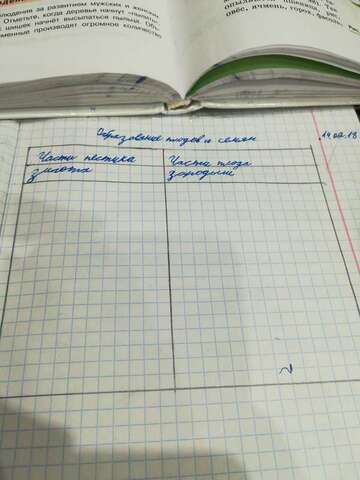 блюдения за развитием мужских и женских
Отметьте, когда деревья начнут «пылить»,
шишек начнёт высыпаться пыльца. Объ-
менные производят огромное количество
опыл
овёс, ячмень, горох, фасоль
Образование плодов и семян
14.02.18
Части пестика
Части плода
зигота
зародыш